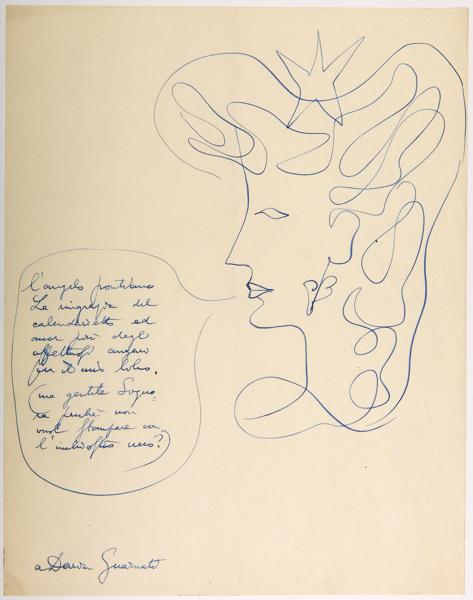 l'angelo pontiano
La ringrazia del
calendarietto ed
ancor più degli
affettuosi auguri
per il mio
(ma gentile Signo=
ra perché non
vuol stampare con
l'inchiostro nero?)
a Daria Guarnati